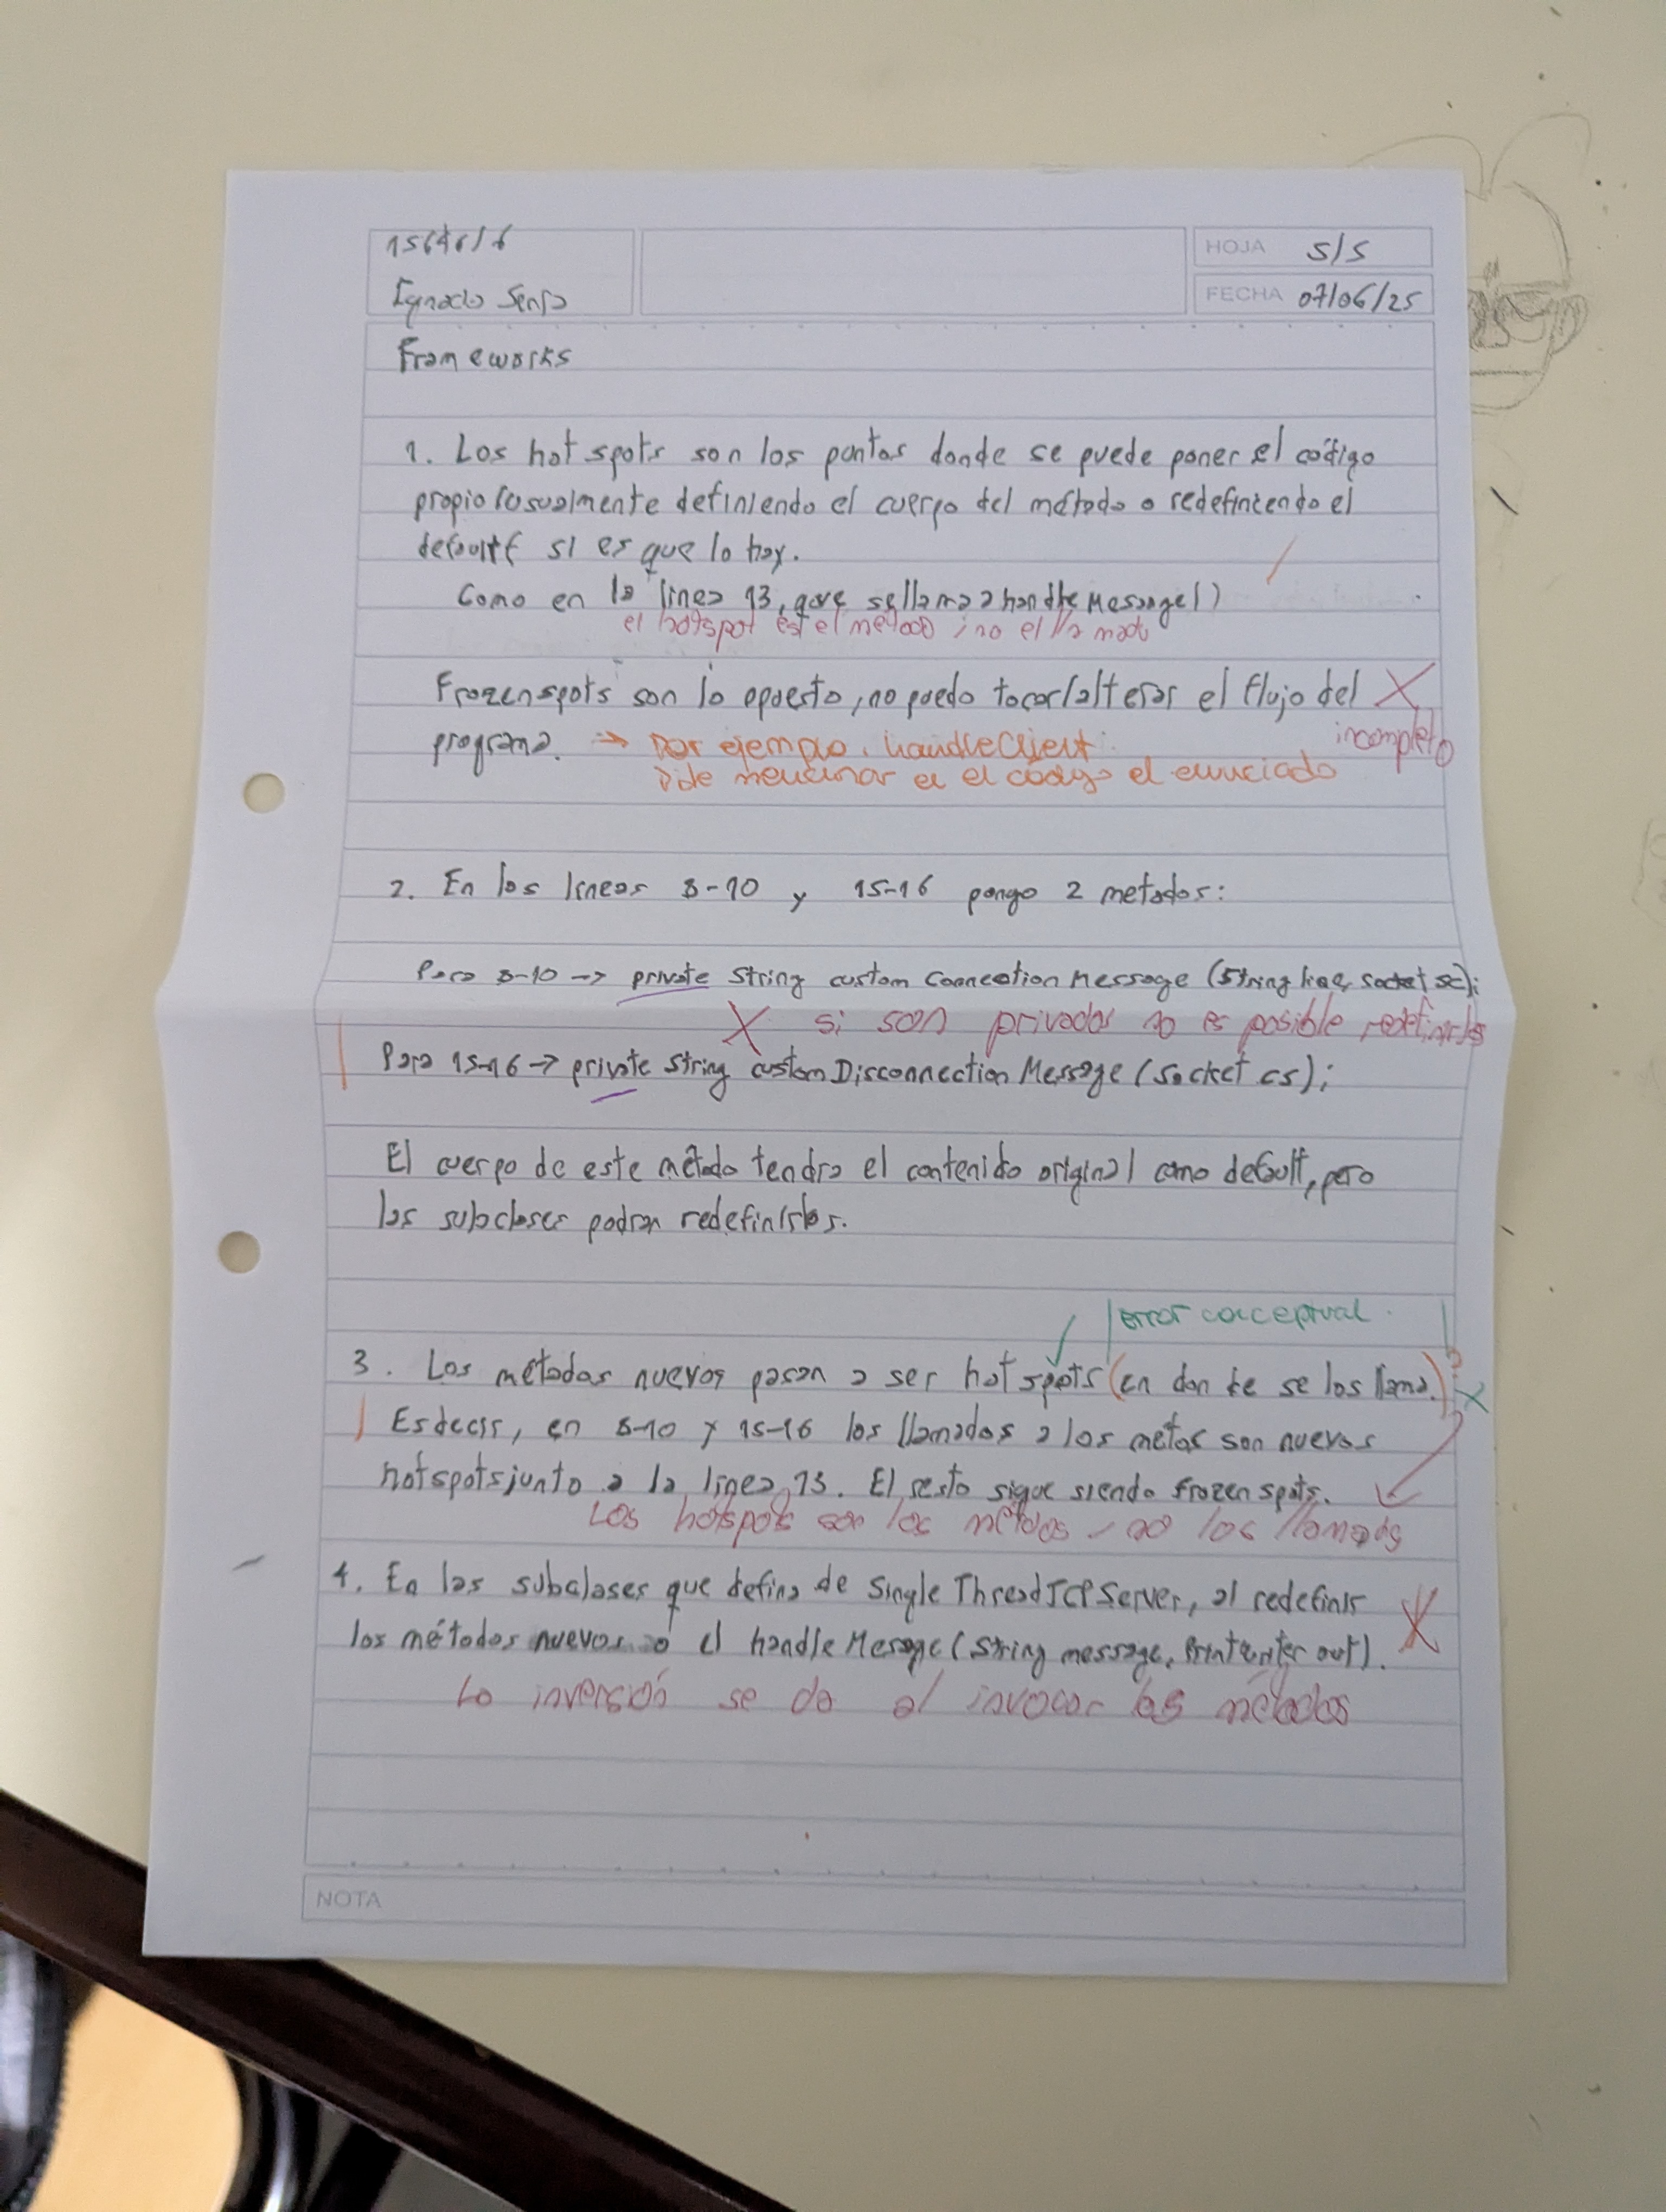 15646/6
Ignacio
HOJA 5/5
FECHA 07/06/25
Frameworks
1. Los hot spots son los puntos donde se puede poner el código
propio (usualmente definiendo el cuerpo del método o redefiniendo el
default si es que lo hay.
Como en la linea 13, que se llama a handleMessage()
el hotspot es el método, no el llamado
Frozenspots son lo opuesto, no puedo tocar/alterar el flujo del X
programa. → Por ejemplo. handleClient.
incompleto
Pide mencionar en el código el enunciado
2. En las lineas 8-10 y 15-16 pongo 2 metodos:
Para 8-10 -> private String custom Connection Message (String line, socket sc);
X si son privados no es posible redefinirlos
Para 15-16 -> private String customDisconnection Message (Socket cs);
El cuerpo de este método tendra el contenido original como default, pero
las subclases podran redefinirlos.
error conceptual.
3. Los métodos nuevos pasan a ser hot spots (en donde se los llama.) X
Es decir, en 8-10 y 15-16 los llamados a los metos son nuevos
hotspots junto a la linea 13. El resto sigue siendo frozen spots.
Los hotspots son los métodos, no los llamados
4. En las subclases que defina de SingleThreadTCPServer, al redefinir
los métodos nuevos o el handle Mesage (String message, Printwriter out). X
La inversión se da al invocar los métodos
NOTA